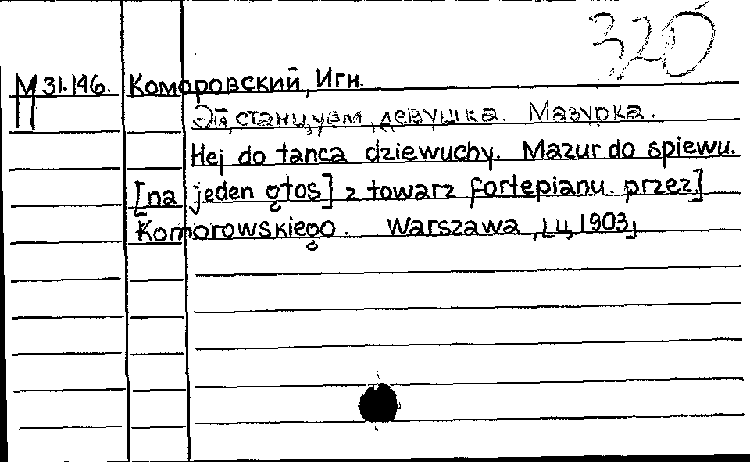 320
М 31.146. Коморовский, Игн.
Эй, станцуем, девушка. Мазурка.
Hej do tanca dziewuchy. Mazur do spiewu.
[na jeden głos] z towarz fortepianu. przez J
Komorowskiego. Warszawa, [ц, 1903]